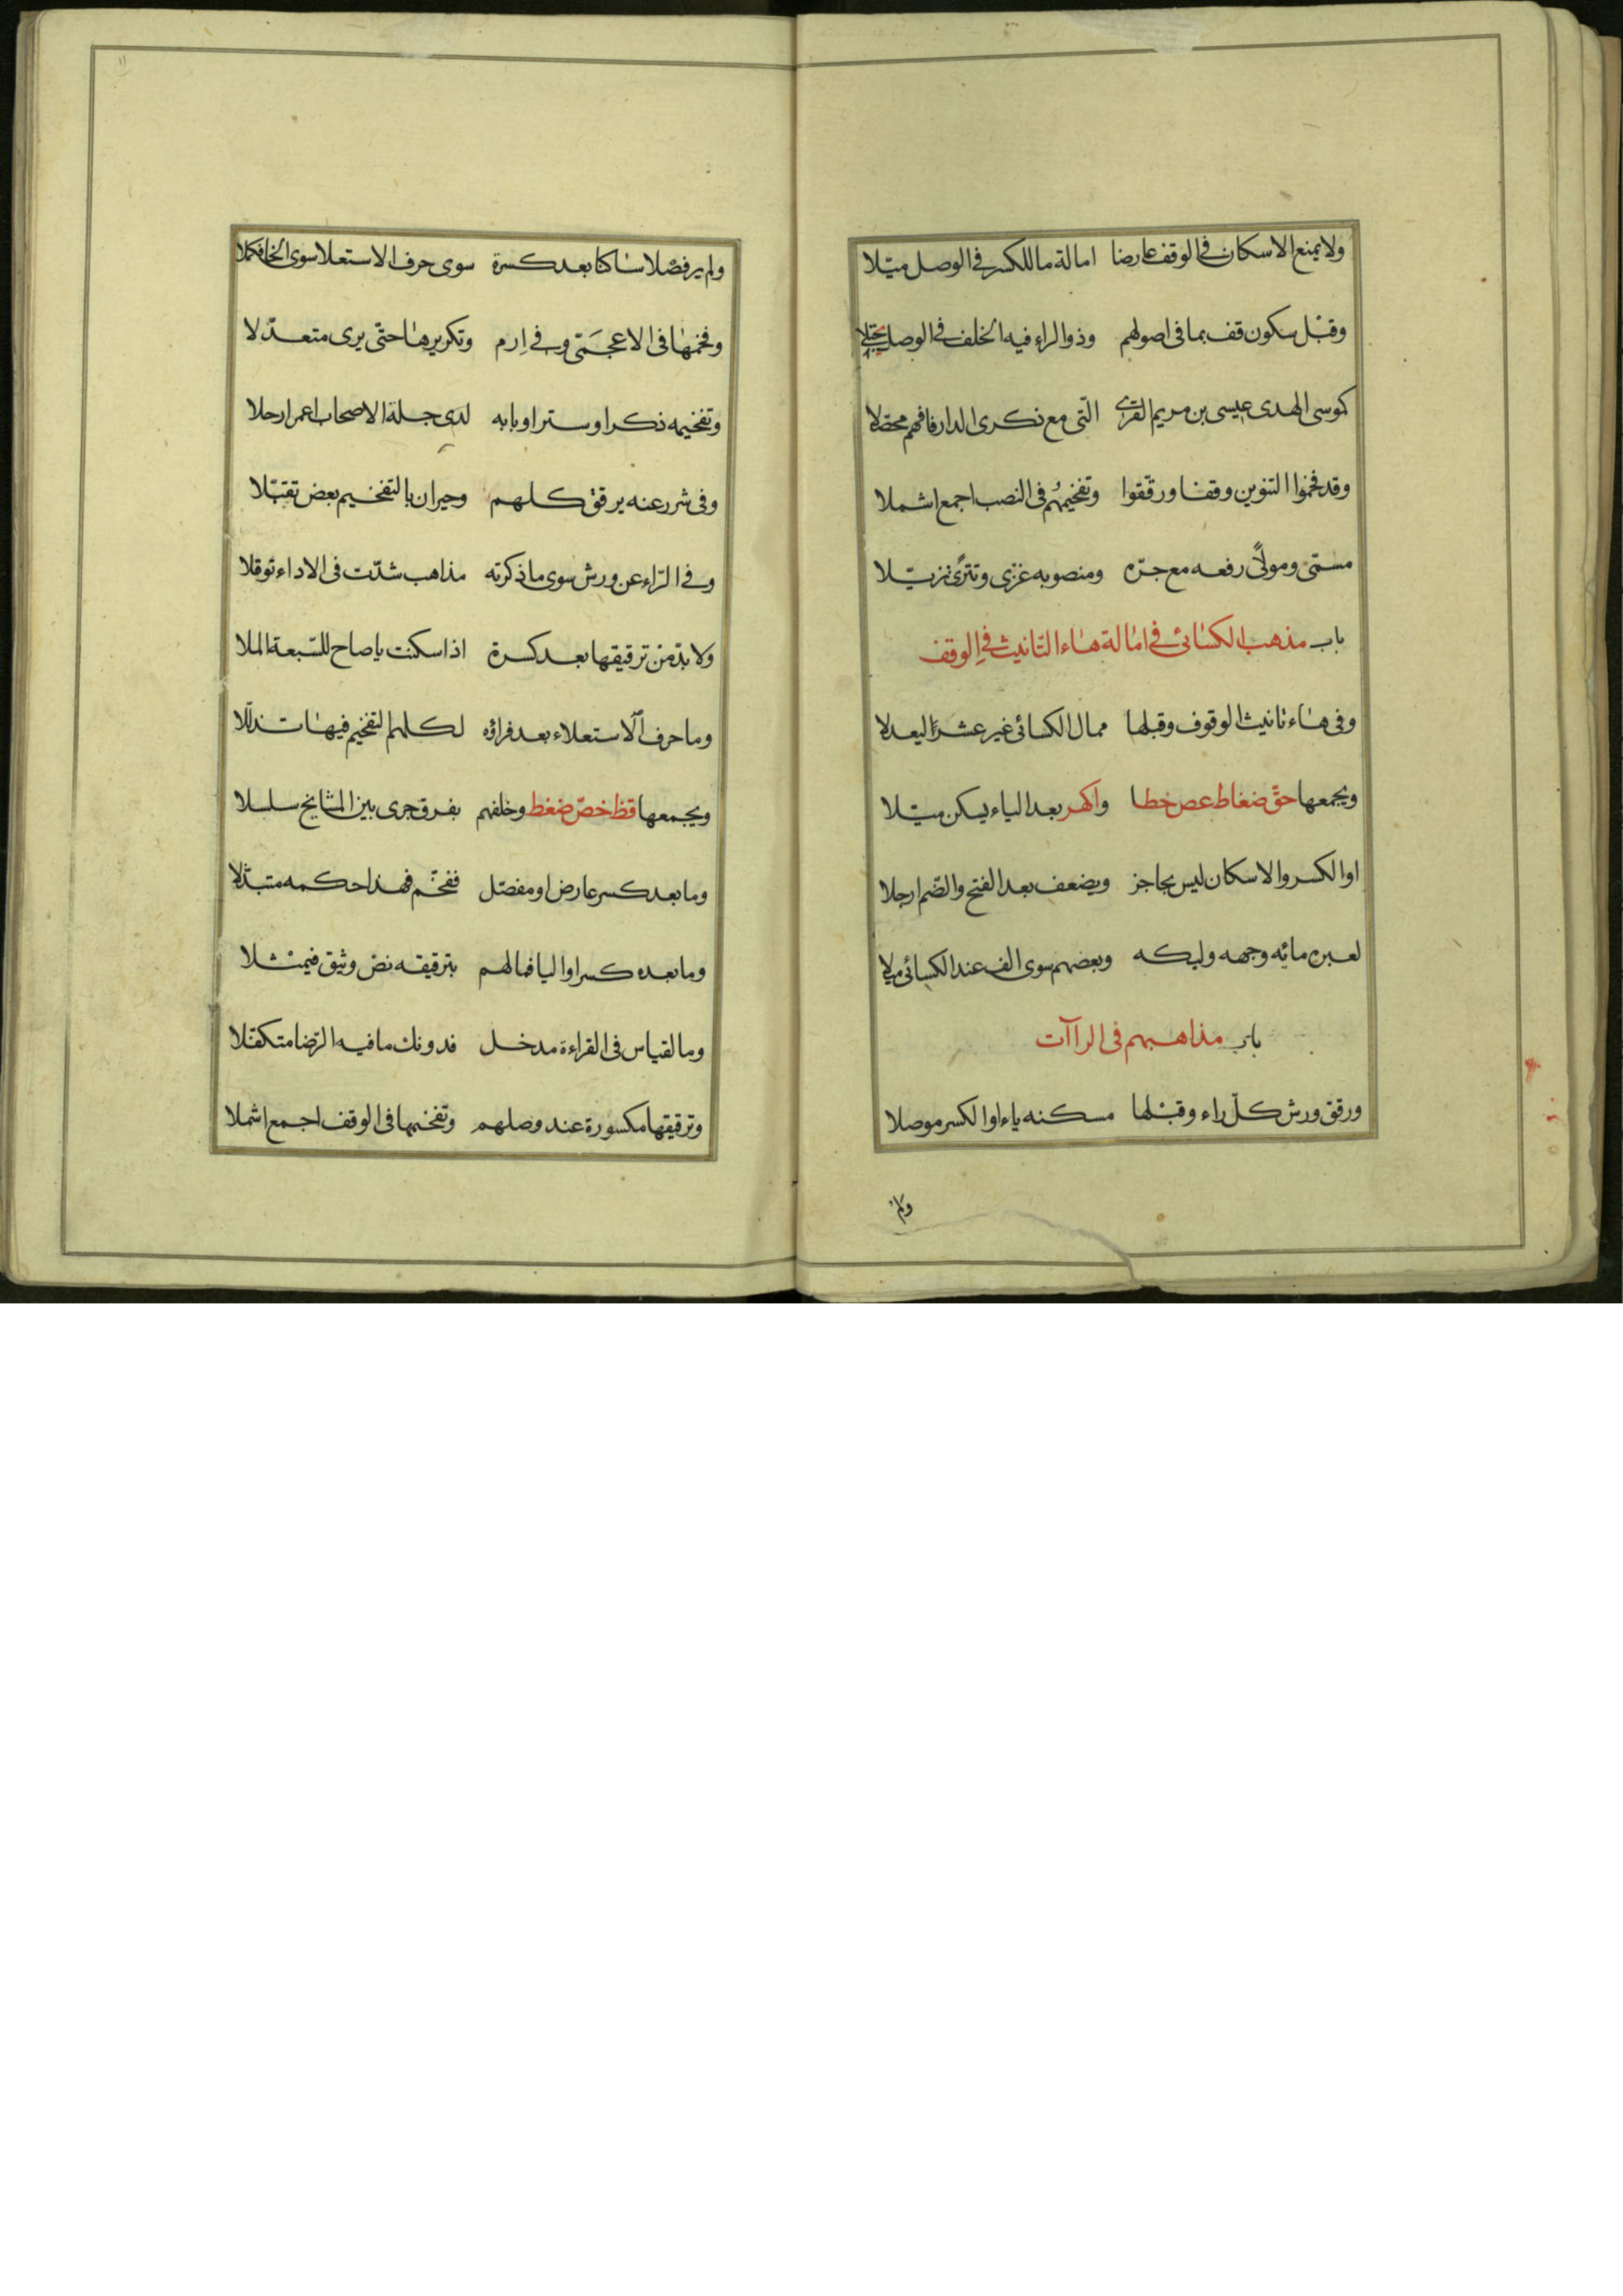 ولا يمنع الاسكان فى الوقف عارضا امالة ما للكسر فى الوصل ميّلا
وقبْل سكون قف بما فى اصولهم وذو الراء فيه الخلف فى الوصل يجتلا
كموسى الهدى عيسى بن مريم القرى الّتى مع ذكرى الدار فافهم محصّلا
وقد فخموا التنوين وقفا ورققوا وتفخيمُهُم فى النصب اجمع اشملا
مسمّى ومولًى رفعه مع جرّه ومنصوبه غزى وتترًى تزيّلا
باب مذهب الكسائى فى امالة هاء التانيث فى الوقف
وفى هاء تانيث الوقوف وقبلها ممال الكسائى غير عشر ليعدلا
ويجمعها حقّ ضغاط عص خظا واكهر بعد الياء يسكن ميّلا
او الكسر والاسكان ليس بحاجز ويضعف بعد الفتح والضّم ارجلا
لعبره مائه وجهه وليكه وبعضهم سوى الف عند الكسائى ميلا
باب مذاهبهم فى الراآت
ورقق ورش كلّ راء وقبْلها مسكنه ياء او الكسر موصلا
ولم
١١
ولم ير فصْلا ساكنا بعد كسرة سوى حرف الاستعلا سوى الخا فكملا
وفخمها فى الاعجمَىّ وفى اِرم وتكريرها حتّى يرى متعدّلا
وتفخيمه ذكرا وسترا وبابه لدى جلة الاصحاب اعمر ارحلا
وفى شرر عنه يرقق كلهم وحيران بالتفخيم بعض تقبّلا
وفى الرّاء عن ورش سوى ما ذكرته مذاهب شذّت فى الاداء توقلا
ولا بدّ من ترقيقها بعد كسرة اذا سكنت يا صاح للسّبعة الملا
وما حرف الاستعلاء بعد فراؤه لكلهم التفخيم فيها تذلّلا
ويجمعها قظ خصّ ضغط وخلفهم بفرق جرى بين المشايخ سلسلا
وما بعد كسر عارض او مفصّل ففخّم فهذا حكمه متبذّلا
وما بعده كسر او اليا فما لهم بترقيقه نصّ وثيق فيمْثلا
وما لقياس فى القراءة مدخل فدونك ما فيه الرّضا متكفّلا
وترقيقها مكسورة عند وصلهم وتفخيمها فى الوقف اجمع اشملا